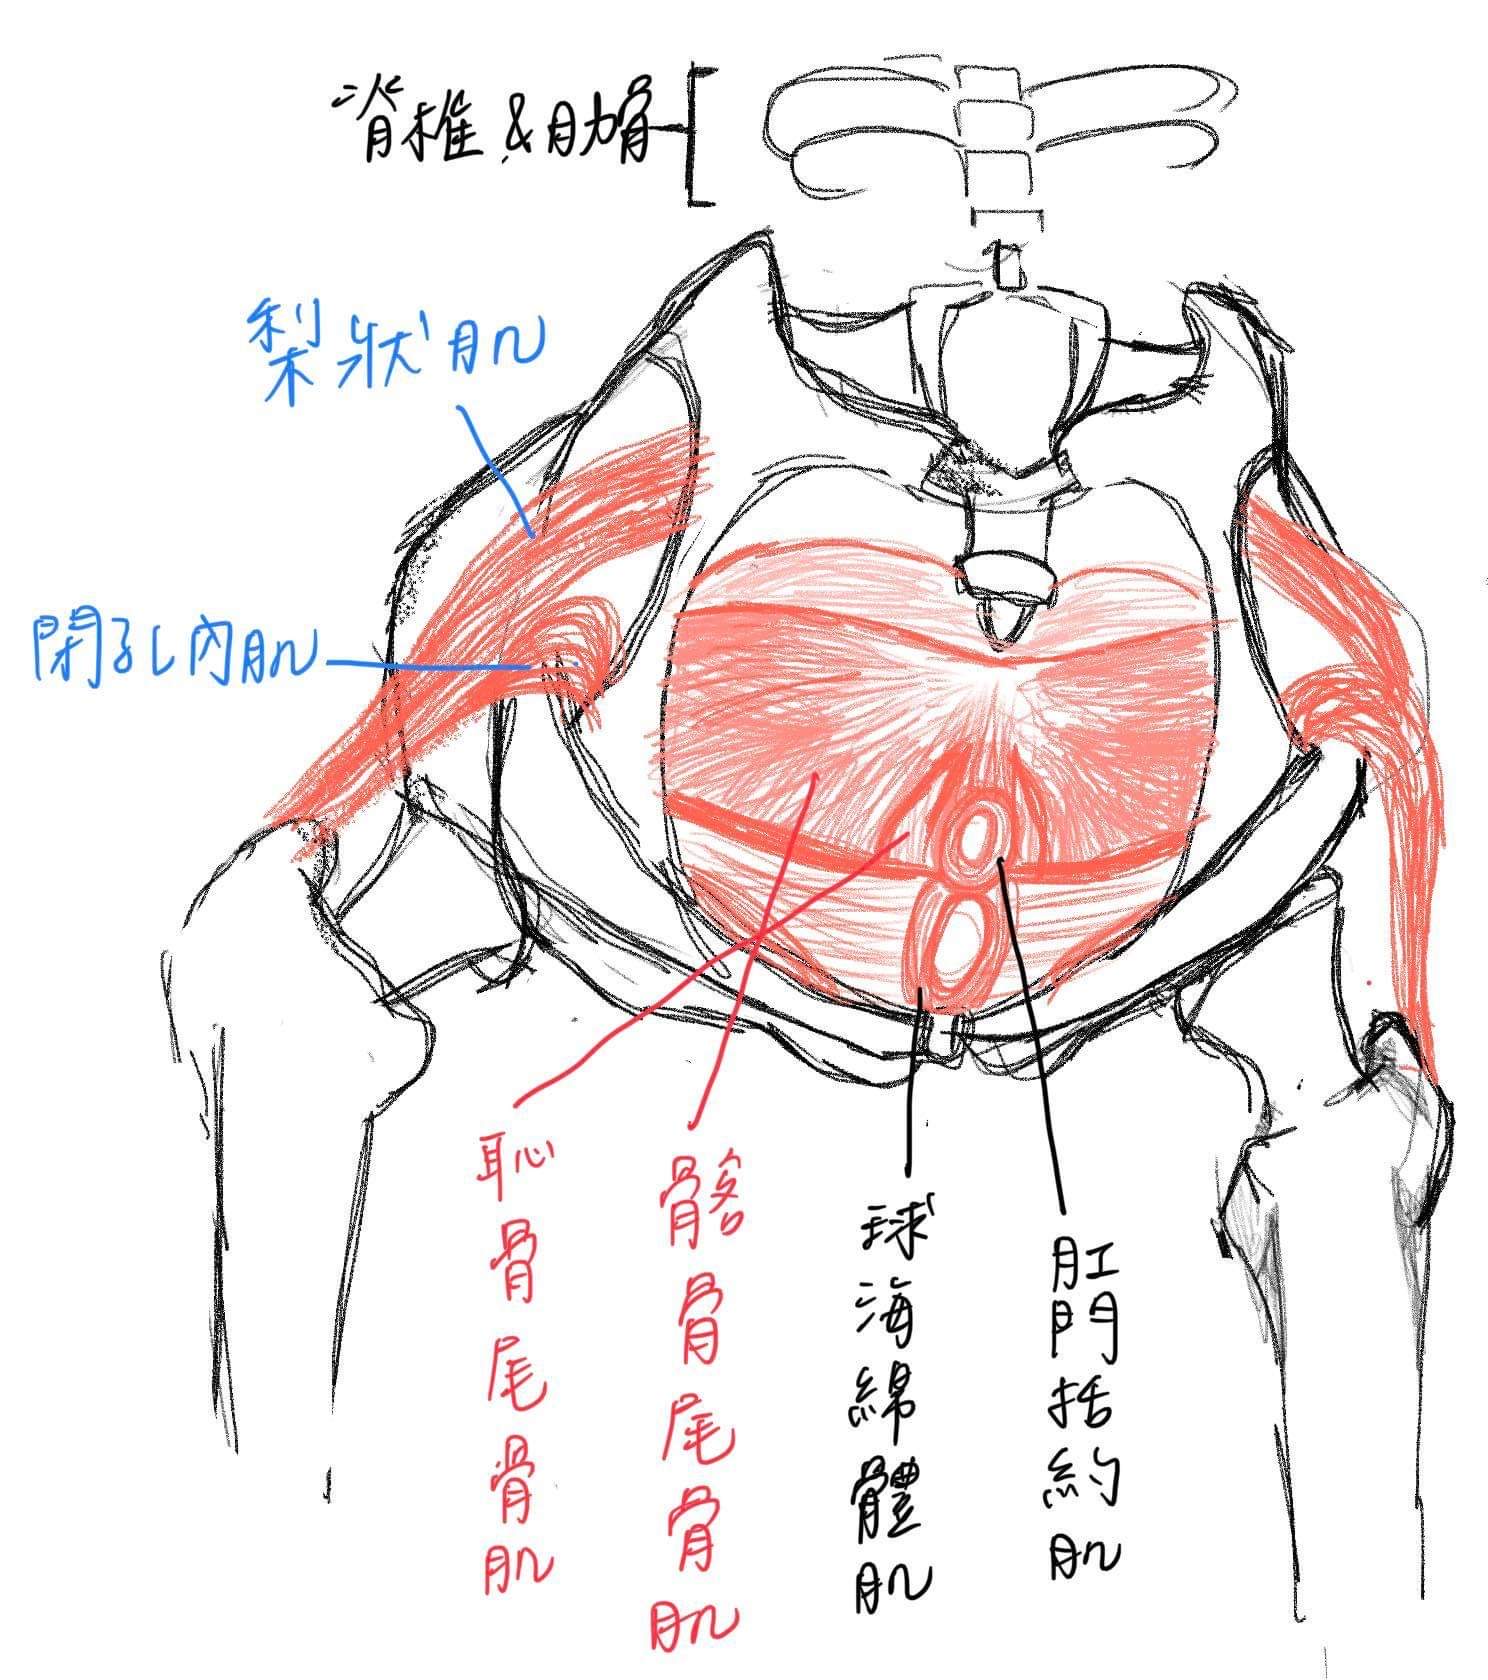 脊椎&肋骨
梨狀肌
閉孔內肌
恥骨尾骨肌
髂骨尾骨肌
球海綿體肌
肛門括約肌